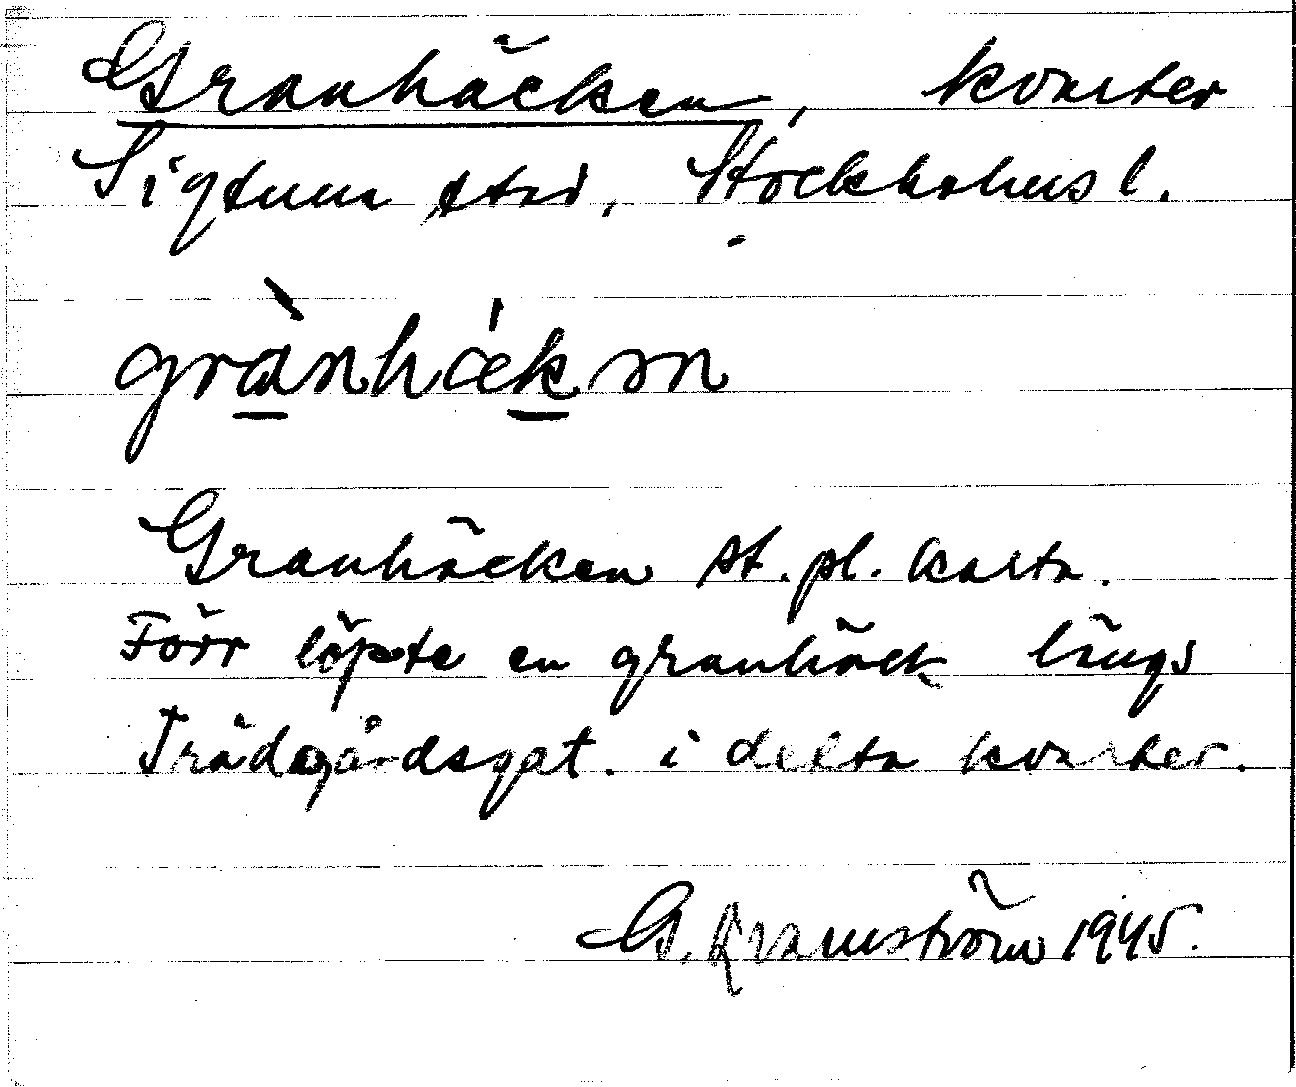 Granhäcken, kvarter
Sigtuna stad, Stockholms l.
grànhækən
Granhäcken st.pl. karta.
Förr löpte en granhäck längs
Trädgårdsgat. i detta kvarter.
G. Qvarnström 1945.